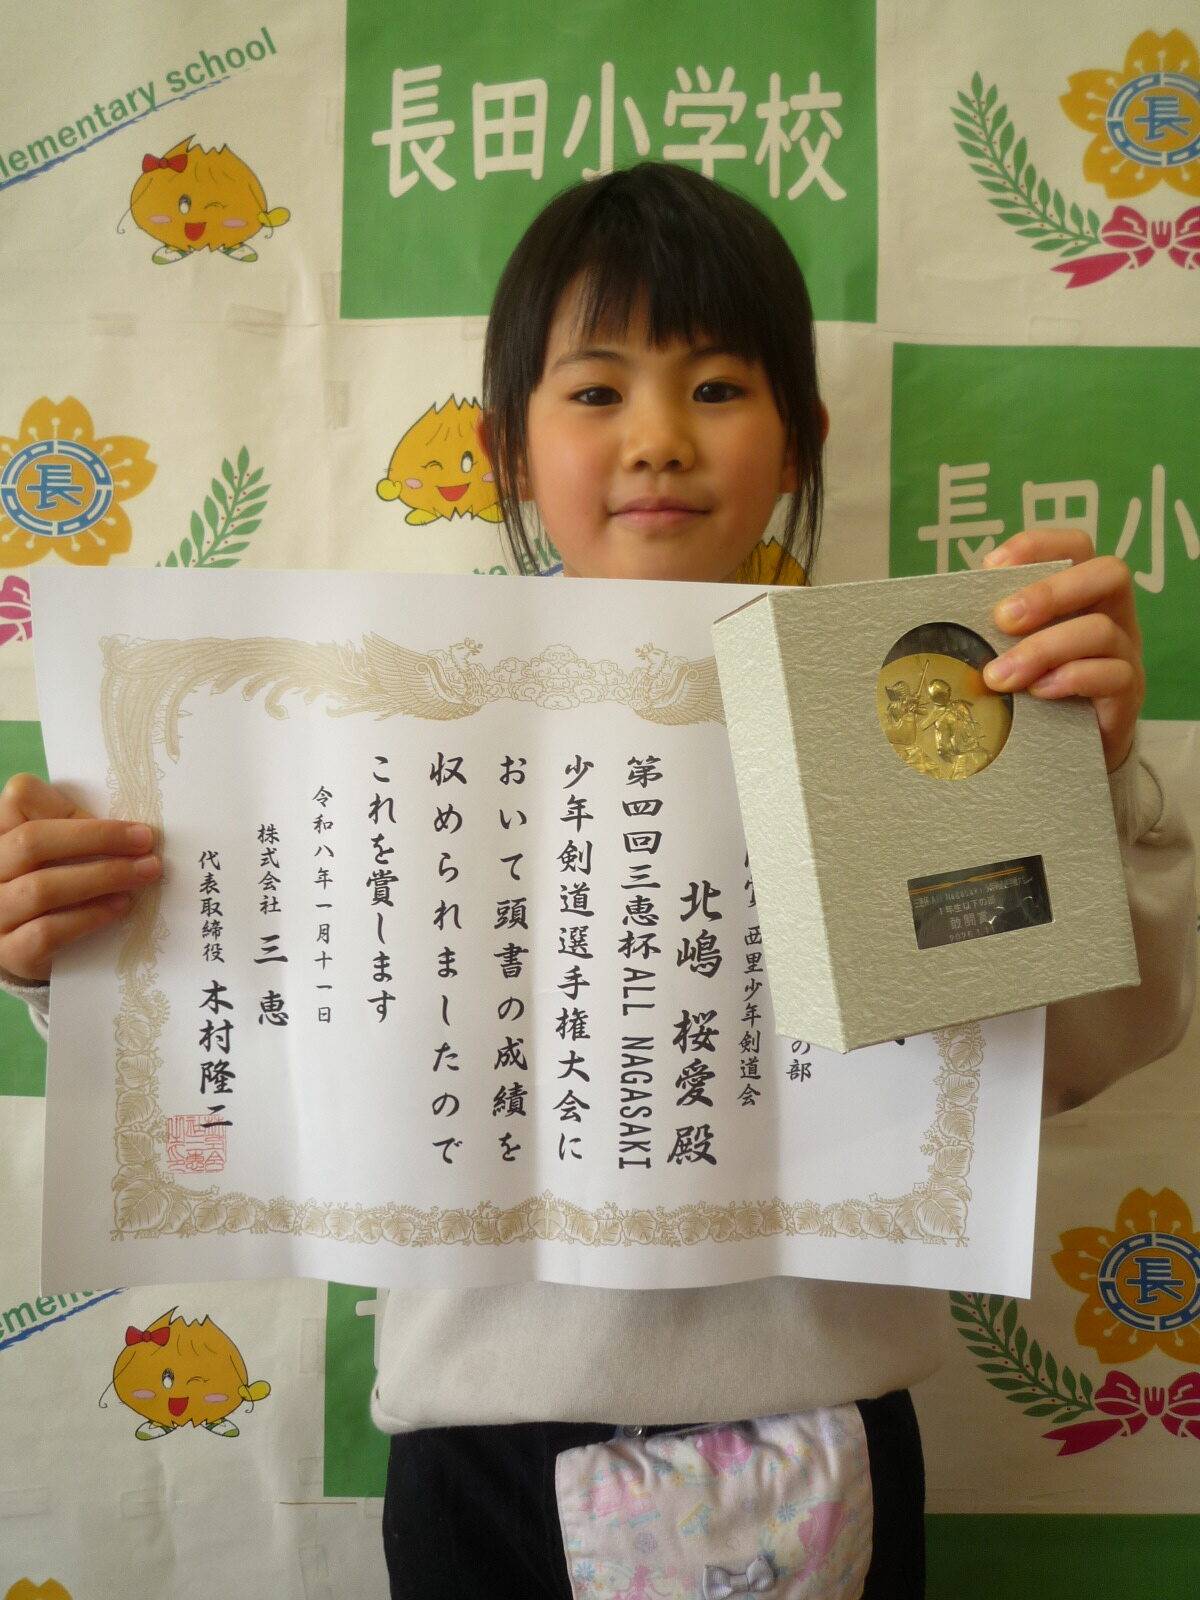 lementary school
長田小学校
長
長
長田小
の部
賞 西里少年剣道会
北嶋 桜愛 殿
第四回三恵杯ALL NAGASAKI
少年剣道選手権大会に
おいて頭書の成績を
収められましたので
これを賞します
令和八年一月十一日
株式会社 三恵
代表取締役 木村隆二
1年生以下の部
敢闘賞
ementa
長